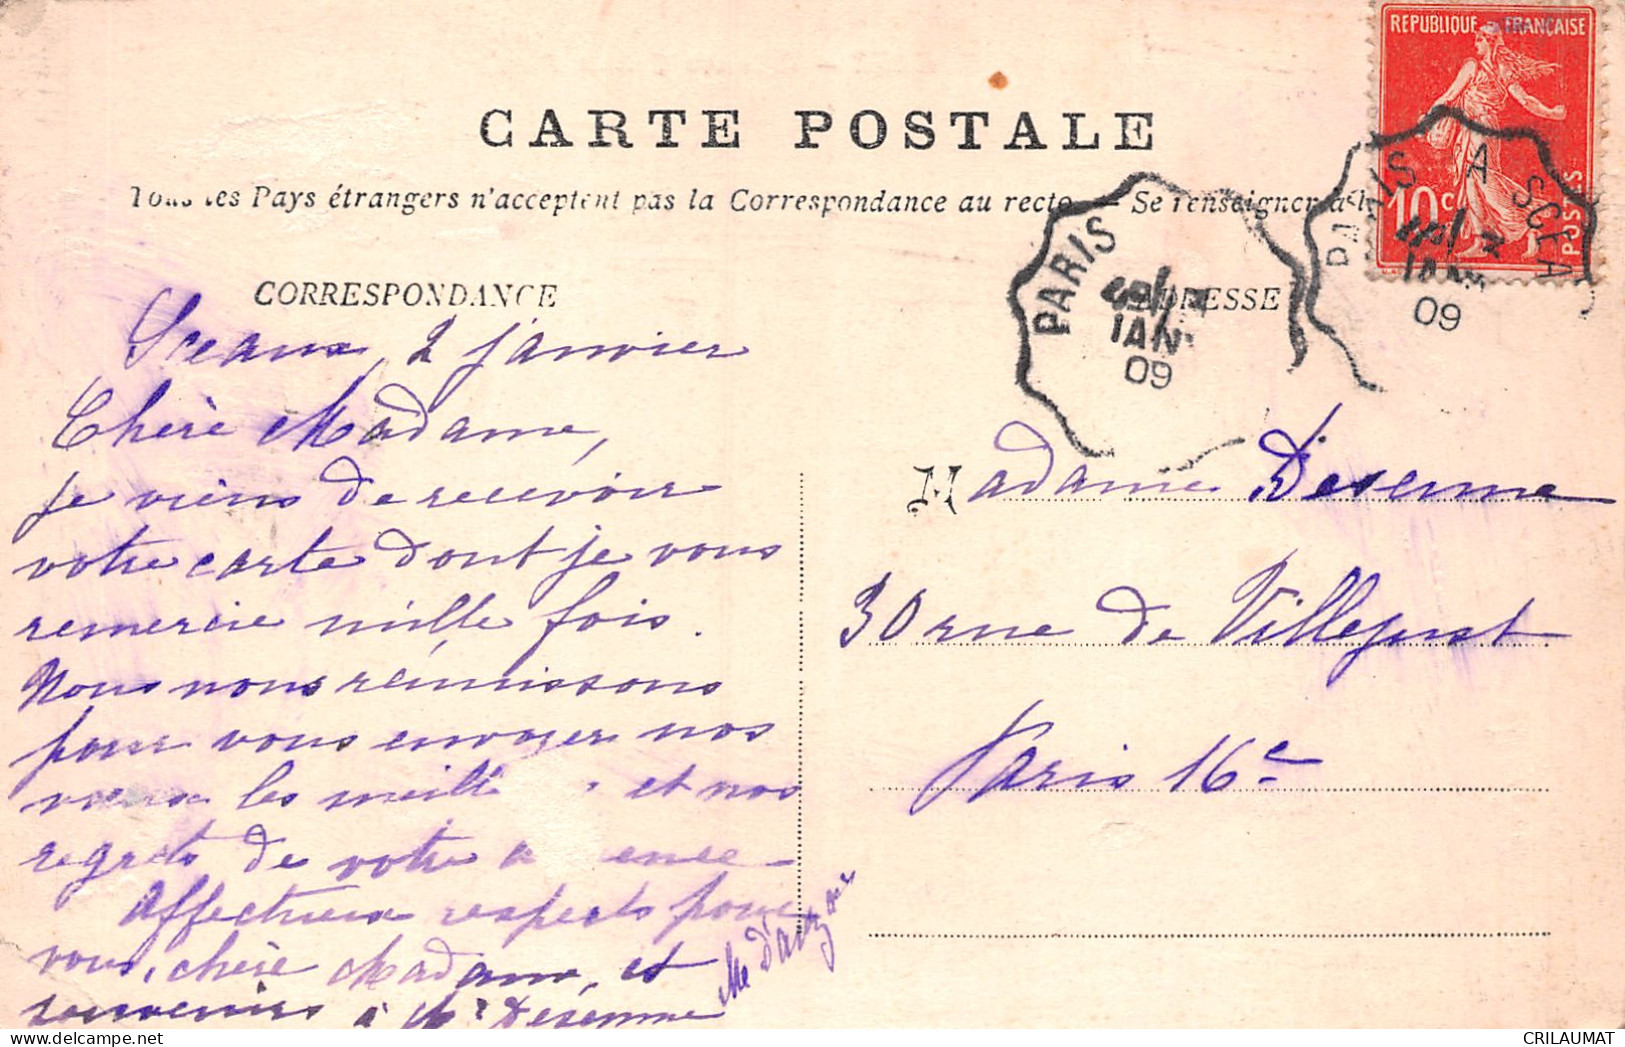 CARTE POSTALE
Tous les Pays étrangers n'acceptent pas la Correspondance au recto. — Se renseigner à la
CORRESPONDANCE
ADRESSE
REPUBLIQUE FRANÇAISE
10c
POSTES
PARIS
JAN
09
PARIS A SCEA
JAN
09
Sceaux, 2 janvier
Chère Madame,
je viens de recevoir
votre carte dont je vous
remercie mille fois.
Nous nous réunissons
pour vous envoyer nos
vœux les meill et nos
regrets de votre a ence
Affectueux respects pour
vous, chère Madame, et
souvenirs à Mr Désenne
Madame Désenne
30 rue de Villejust
Paris 16e
CRILAUMAT